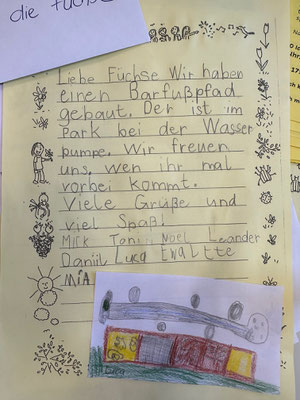 die Füchse
Liebe Füchse Wir haben
einen Barfußpfad
gebaut. Der ist im
Park bei der Wasser
pumpe. Wir freuen
uns, wen ihr mal
vorbei kommt.
Viele Grüße und
viel Spaß!
Mick Tom Noel Leander
Daniil Luca
Mia